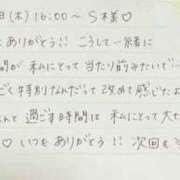 日(木) 16:00〜 S木美♡
ありがとう!! こうして一糸者に
時間が 私にとって 当たり前みたいで…
ごく特別なんだって 改めて感じたよ
んと 過ごす時間は 私にとって 大
♡ いつも ありがとう!! 次回も